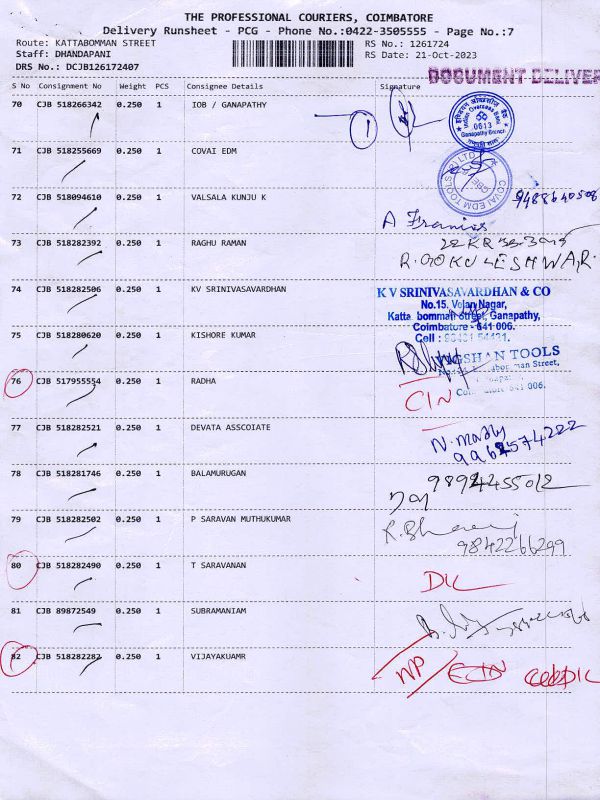 THE PROFESSIONAL COURIERS, COIMBATORE
Delivery Runsheet - PCG - Phone No.:0422-3505555 - Page No.:7
Route: KATTABOMMAN STREET RS No.: 1261724
Staff: DHANDAPANI RS Date: 21-Oct-2023
DRS No.: DCJB126172407 DOCUMENT DELIVER
S No Consignment No Weight PCS Consignee Details Signature
70 CJB 518266342 0.250 1 IOB / GANAPATHY
Indian Overseas Bank 0613 Ganapathy Branch
71 CJB 518255669 0.250 1 COVAI EDM
COVAI EDM TOOLS (P) LTD CBE
72 CJB 518094610 0.250 1 VALSALA KUNJU K 9488640508
A Francis
73 CJB 518282392 0.250 1 RAGHU RAMAN
R. GOKULESHWAR.
74 CJB 518282506 0.250 1 KV SRINIVASAVARDHAN K V SRINIVASAVARDHAN & CO
No.15, Velan Nagar,
Katta bomman Street, Ganapathy,
Coimbatore - 641 006.
75 CJB 518280620 0.250 1 KISHORE KUMAR Cell :
TOOLS
76 CJB 517955554 0.250 1 RADHA
CIN 641 006.
77 CJB 518282521 0.250 1 DEVATA ASSCOIATE
78 CJB 518281746 0.250 1 BALAMURUGAN 9894455012
79 CJB 518282502 0.250 1 P SARAVAN MUTHUKUMAR
9842266299
80 CJB 518282490 0.250 1 T SARAVANAN
DIL
81 CJB 89872549 0.250 1 SUBRAMANIAM
82 CJB 518282282 0.250 1 VIJAYAKUAMR
NP/ CIN DIL